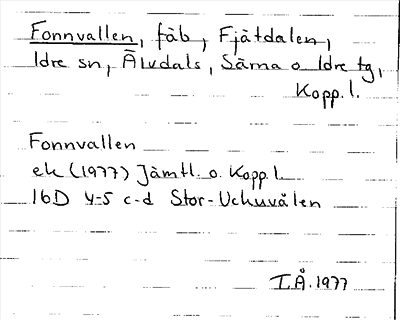 Fonnvallen, fäb, Fjätdalen,
Idre sn, Älvdals, Särna o Idre tg,
Kopp. l.
Fonnvallen
ek (1977) Jämtl. o. Kopp l.
16D 4-5 c-d Stor-Uckuvålen
T.Å. 1977